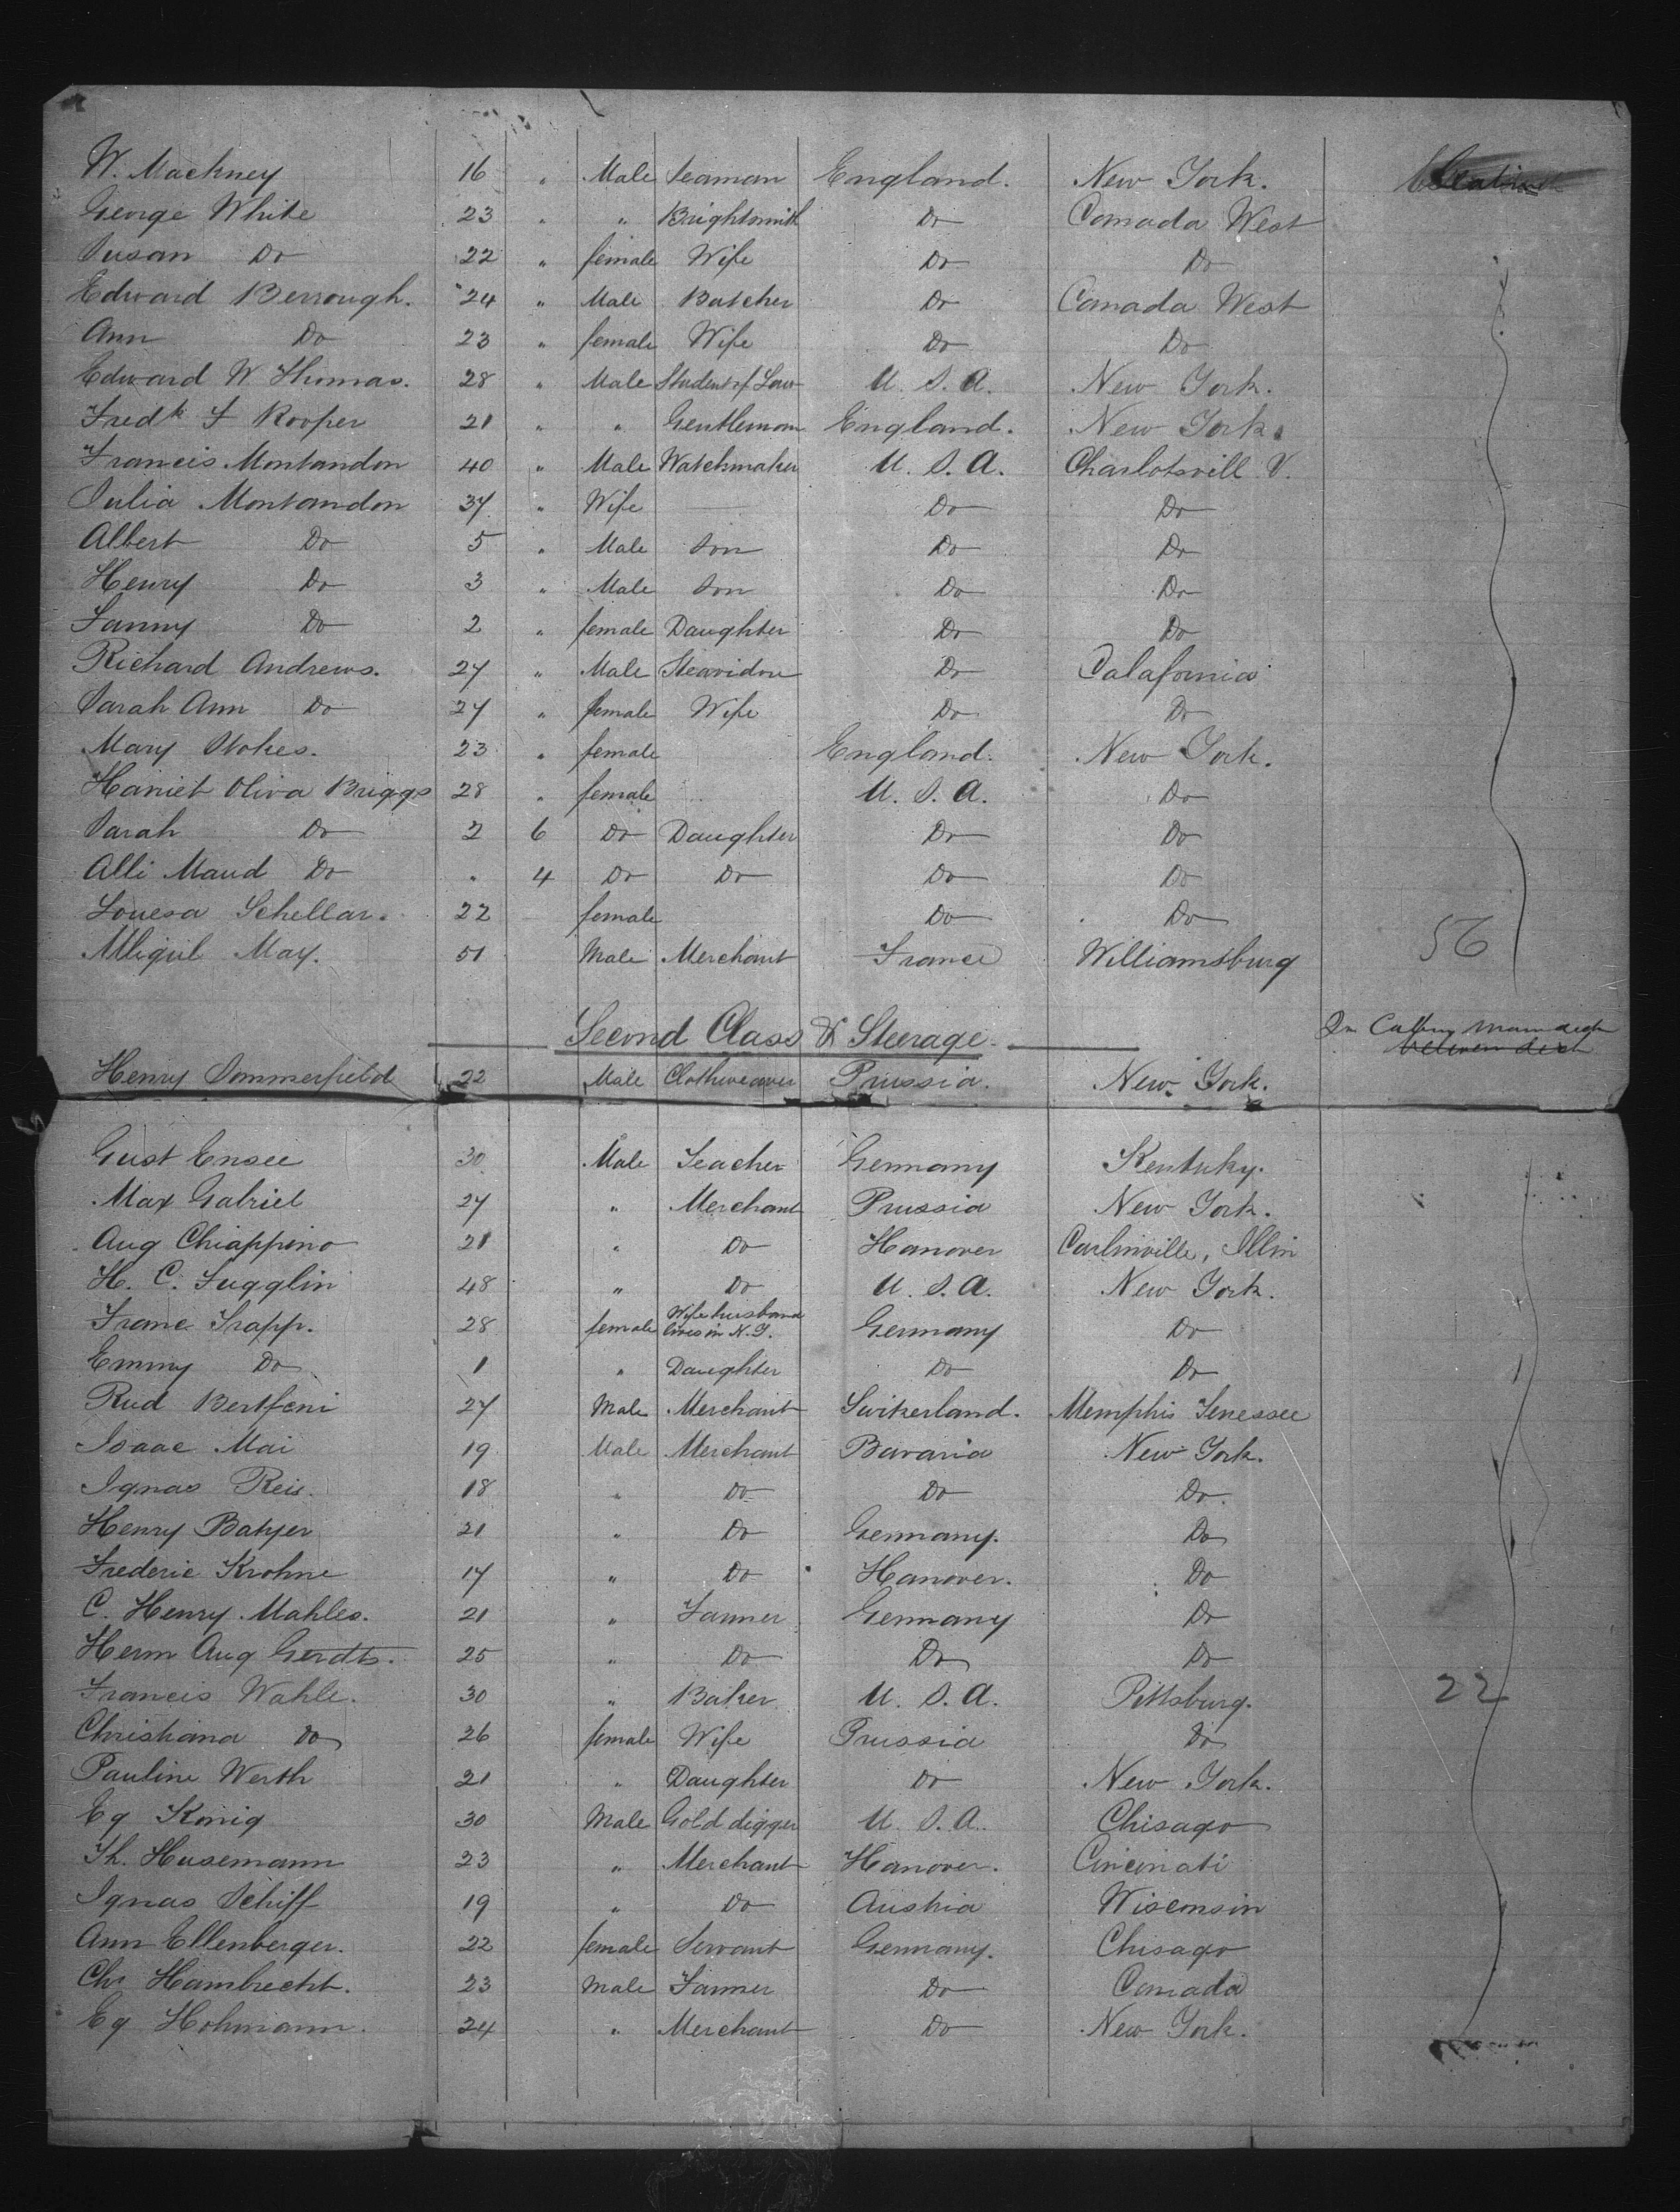 W. Mackney 16 " Male Seaman England. New York.
George White 23 " " Brightsmith Do Comada West
Susan Do 22 " female Wife Do Do
Edward Berrough. 24 " Male Butcher Do Comada West
Ann Do 23 " female Wife Do Do
Edward W Thomas. 28 " Male Student of Law U. S. A. New York.
Fredk F Rooper 21 " " Gentleman England. New York.
Francis Montandon 40 " Male Watchmaker U. S. A. Charlotsvill V.
Julia Montandon 37 " Wife — Do Do
Albert Do 5 " Male Son Do Do
Henry Do 3 " Male Son Do Do
Fanny Do 2 " female Daughter Do Do
Richard Andrews. 27 " Male Steavidore Do Calafornia
Sarah Ann Do 27 " female Wife Do Do
Mary Stokes. 23 " female England. New York.
Harriet Oliva Briggs 28 " female U. S. A. Do
Sarah Do 2 6 Do Daughter Do Do
Alli Maud Do " 4 Do Do Do Do
Louesa Schellar. 22 female Do Do
May. 51 Male Merchant France Williamsburg 56
Second Class & Steerage.
between deck
Henry Sommerfield 22 Male Clothweaver Prussia. New York.
Gust Ensee 30 Male Teacher Germany Kentuky.
Max Gabriel 27 " Merchant Prussia New York.
Aug Chiappino 21 " Do Hanover Carlinville, Illin
H. C. Fugglin 48 " Do U. S. A. New York.
Franc Trapp. 28 female Wife husband lives in N.Y. Germany Do
Emmy Do 1 " Daughter Do Do
Rud Bertfeni 27 Male Merchant Switzerland. Memphis Tenessee
Isaac Mai 19 Male Merchant Bavaria New York.
Ignas Reis. 18 " Do Do Do.
Henry Batzer 21 " Do Germany. Do
Frederic Krohne 17 " Do Hanover. Do
C. Henry Mahles. 21 " Farmer Germany Do
Herm Aug Gerdts. 25 " Do Do Do
Francis Wahle. 30 " Baker U. S. A. Pittsburg. 22
Christiana Do 26 female Wife Prussia Do
Pauline Werth 21 " Daughter Do New York.
Eg König 30 Male Gold digger U. S. A. Chisago
Th. Husemann 23 " Merchant Hanover. Cincinati
Ignas Schiff 19 " Do Austria Wisconsin
Ann Ellenberger. 22 female Servant Germany. Chisago
Chr Hambrecht. 23 Male Farmer Do Comada
Eg Hohmann. 24 " Merchant Do New York.